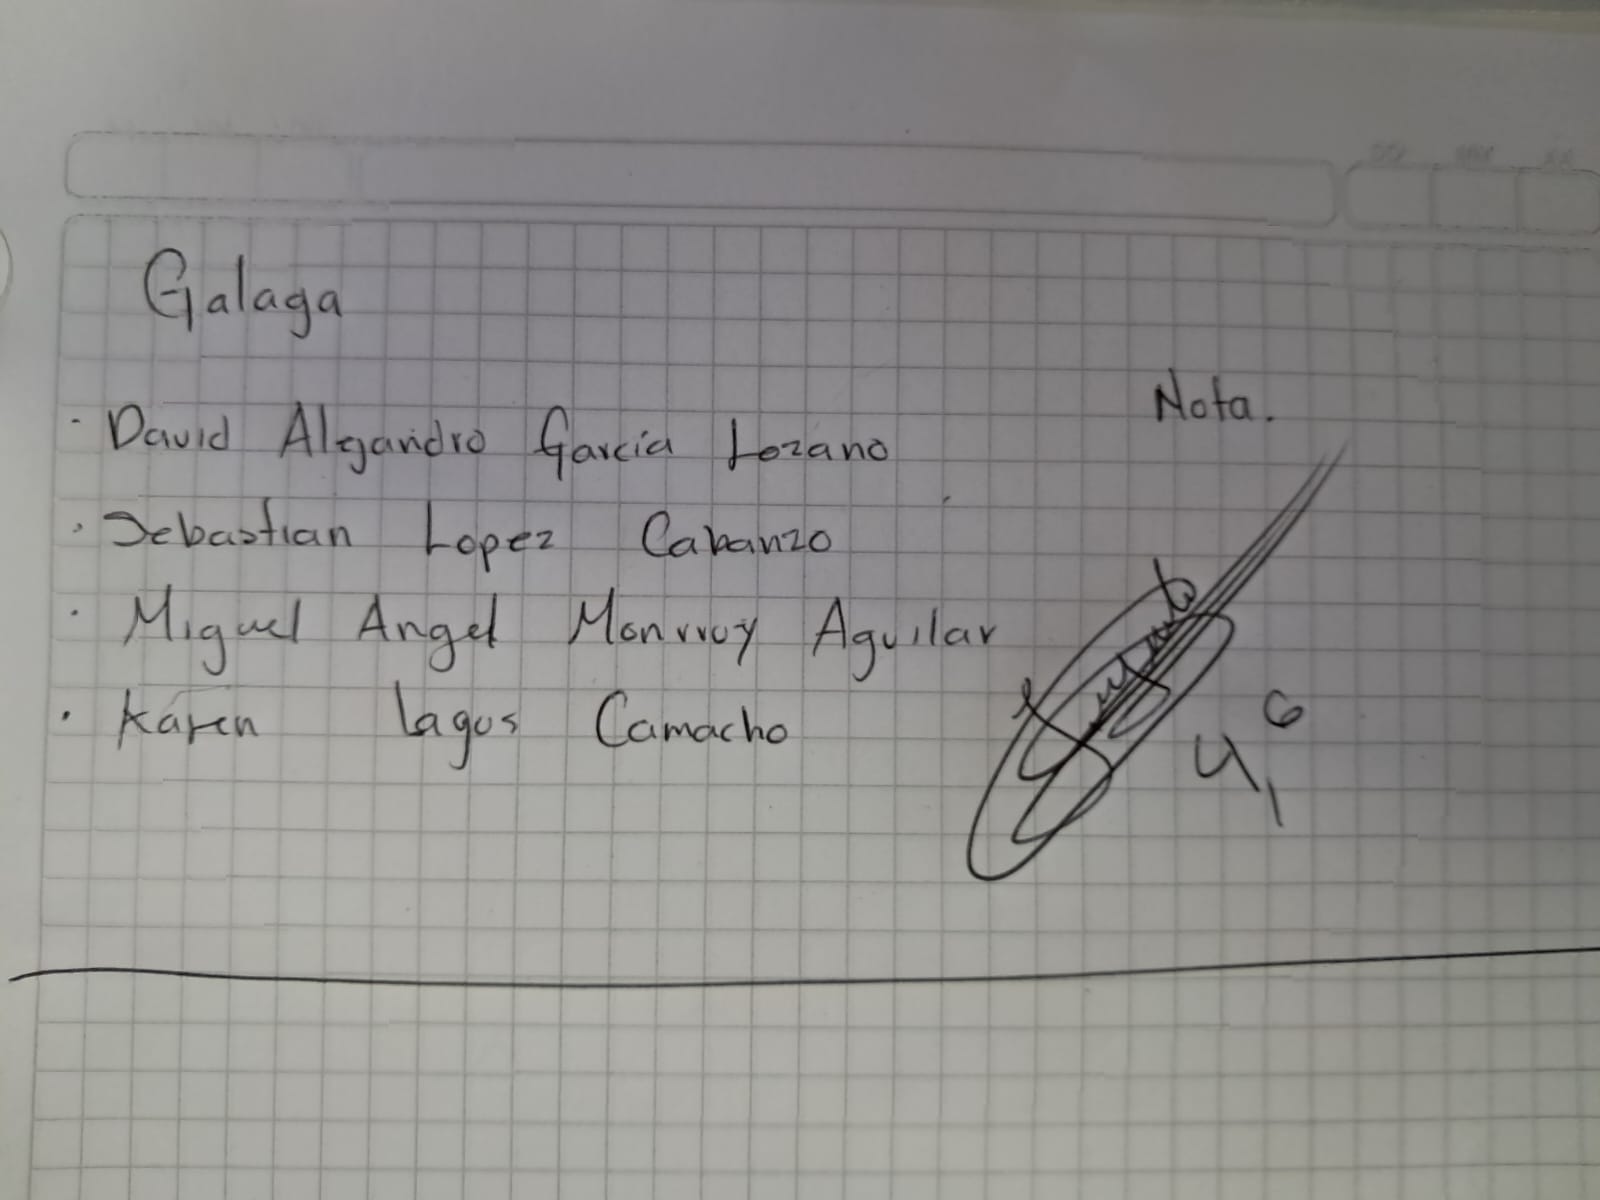 Galaga
Nota.
· David Alejandro Garcia Lozano
· Sebastian Lopez Cabanzo
· Miguel Angel Monrroy Aguilar
· Karen Lagos Camacho
4,6